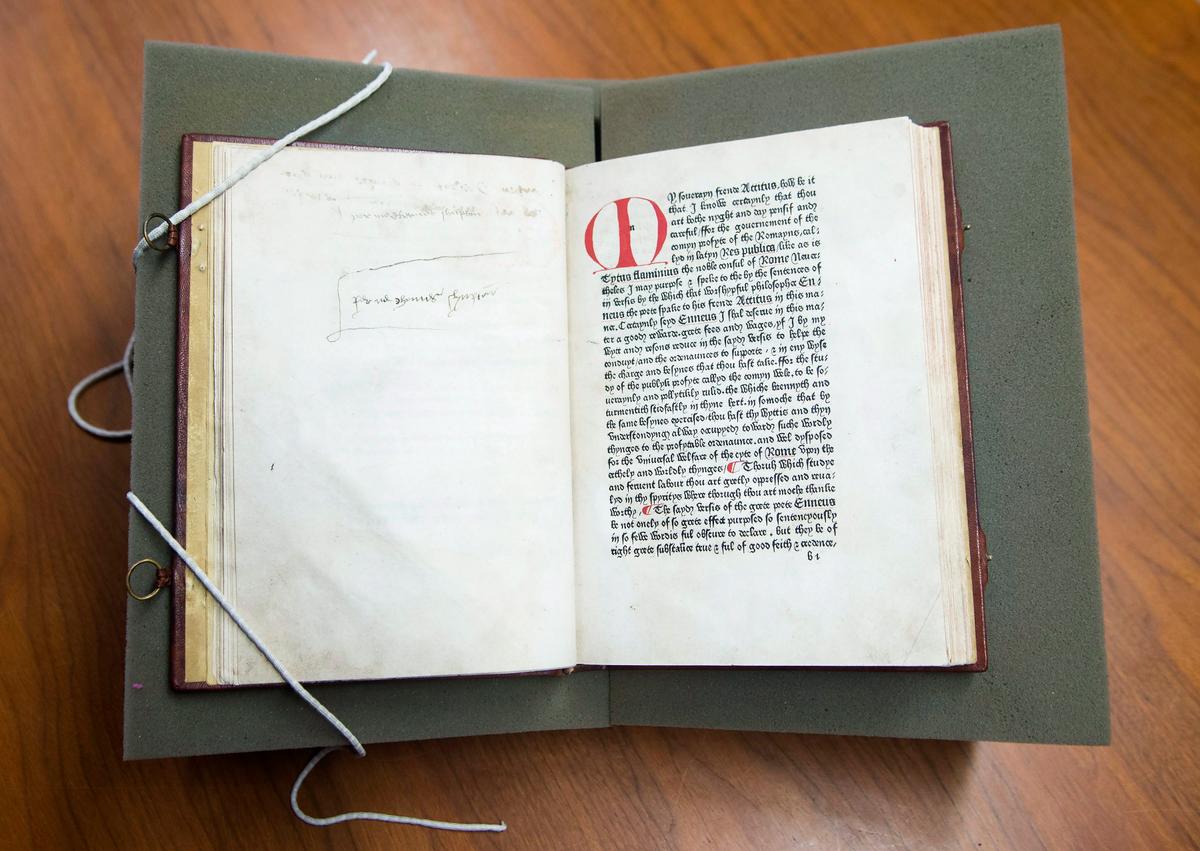 M m
Y souerayn frende Atticus, how be it
that I knowe certaynly that thou
art bothe nyght and day pensif and
careful/ffor the gouernement of the
comyn profyte of the Romayns, cal-
lyd in latyn Res publica/like as is
Tytus flaminius the noble consul of Rome Neuer-
theles I may purpose & speke to the by the sentences of
in versis by the which that worshypful philosopher En-
neus the poete spake to his frende Atticus in this ma-
ner. Certaynly seyd Enneus I shal deserue in this ma-
ter a good rewarde. grete fees and wages, yf I by my
wyt and resons reduce in the sayd versis to helpe the
conduyt/and the ordenaunces to supporte, & in eny wyse
the charge and besynes that thou hast take. ffor the stu-
dy of the publyk profyte callyd the comyn wele, to be so-
ueraynly and pollytikly rulid. the whiche brennyth and
turmentith stidfastly in thyne hert. in somoche that by
the same besynes exercised/thou hast thy wyttis and thyn
vnderstondyng alway occupyed towards suche wordly
thynges to the profytable ordenaunce. and wel dysposed
for the vniuersal welfare of the cyte of Rome vpon the
erthely and worldly thynges/ ¶ Thoruh which studye
and feruent labour thou art gretly oppressed and traua-
lyd in thy spyritys where thorough thou art moche thanke
worthy, ¶ The sayd versis of the grete poete Enneus
be not onely of so grete effect purposed so sentencyously
in so fewe wordis ful obscure to declare. but they be of
right grete substance true & ful of good feith & credence,
b 1